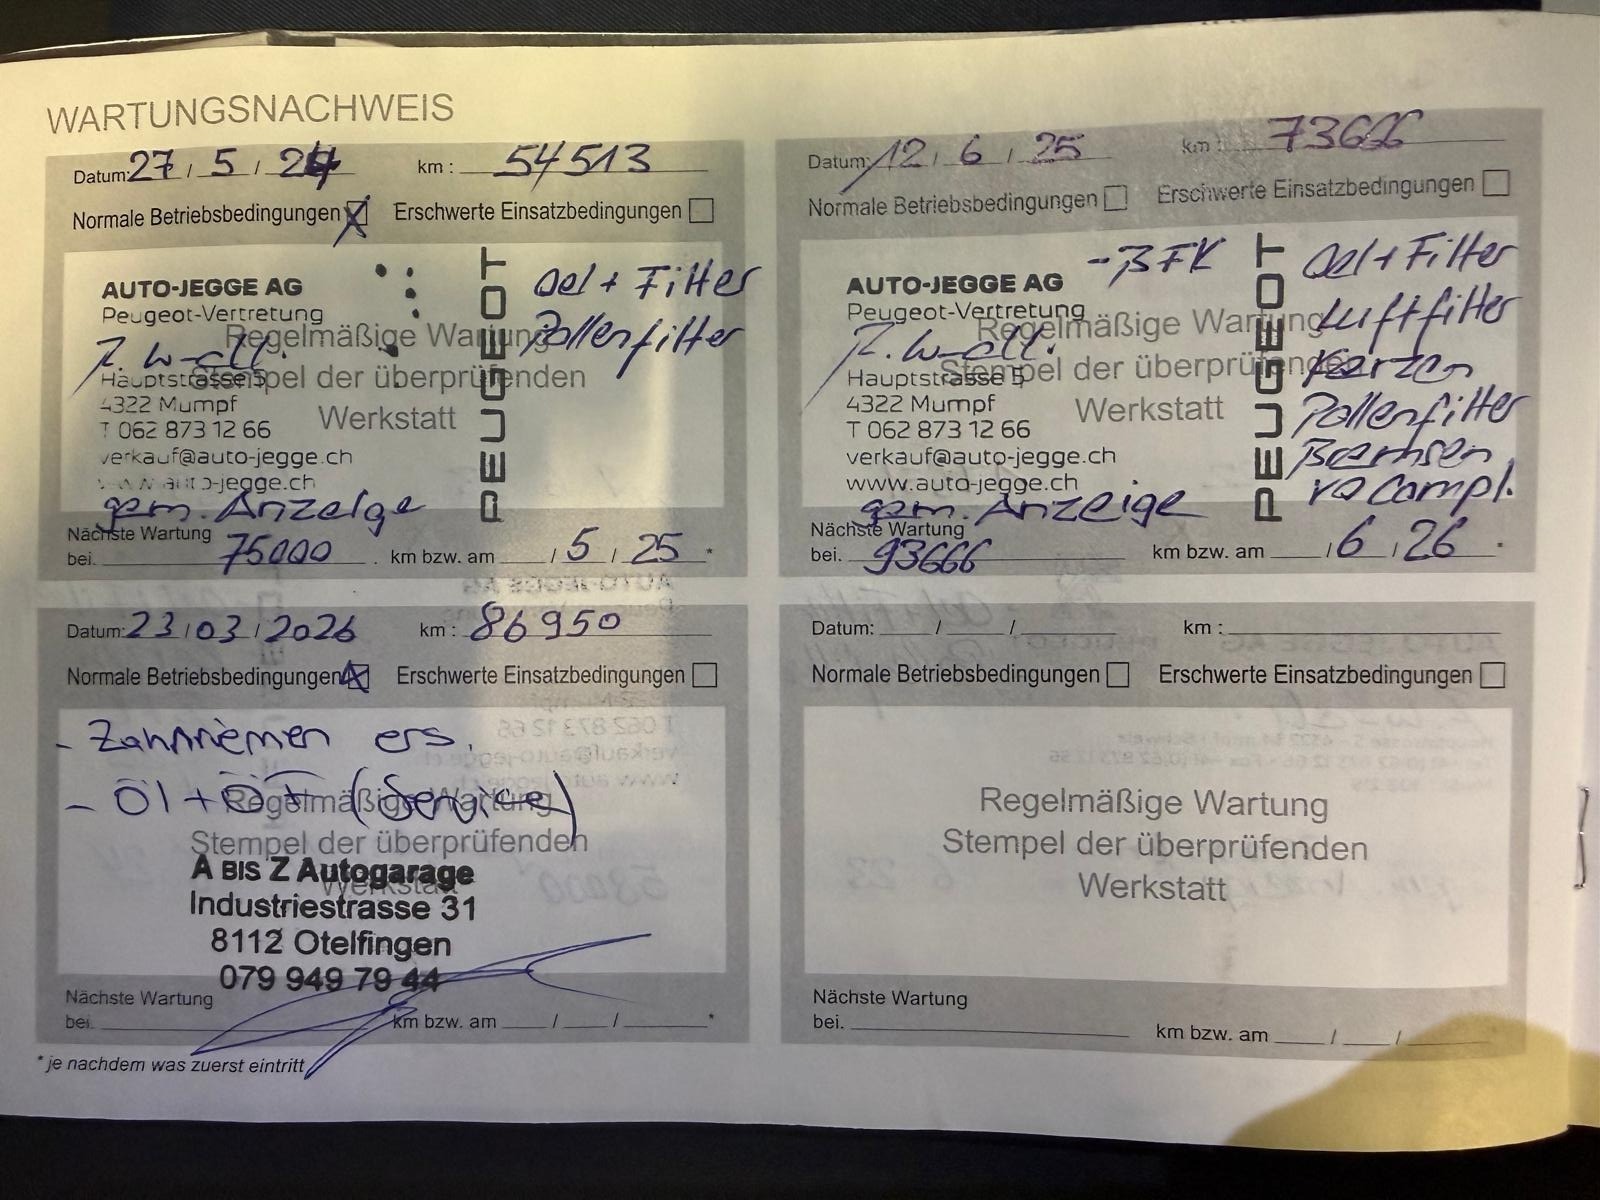 WARTUNGSNACHWEIS
Datum: 27 / 5 / 24 km : 54513
Normale Betriebsbedingungen Erschwerte Einsatzbedingungen
AUTO-JEGGE AG
Peugeot-Vertretung
Hauptstrasse 5
4322 Mumpf
T 062 873 12 66
verkauf@auto-jegge.ch
www.auto-jegge.ch
PEUGEOT
Oel + Filter
Pollenfilter
Regelmäßige Wartung
Stempel der überprüfenden
Werkstatt
gem. Anzeige
Nächste Wartung
bei. 75000 km bzw. am / 5 / 25 *
Datum: 12 / 6 / 25 km : 73666
Normale Betriebsbedingungen Erschwerte Einsatzbedingungen
- BFK
AUTO-JEGGE AG
Peugeot-Vertretung
Hauptstrasse 5
4322 Mumpf
T 062 873 12 66
verkauf@auto-jegge.ch
www.auto-jegge.ch
PEUGEOT
Oel + Filter
Luftfilter
Kerzen
Pollenfilter
Bremsen
Compl.
Regelmäßige Wartung
Stempel der überprüfenden
Werkstatt
gem. Anzeige
Nächste Wartung
bei. 93666 km bzw. am / 6 / 26 *
Datum: 23 / 03 / 2026 km : 86950
Normale Betriebsbedingungen Erschwerte Einsatzbedingungen
- Zahnriemen ers.
- Öl + ÖF (Service)
Regelmäßige Wartung
Stempel der überprüfenden
Werkstatt
A BIS Z Autogarage
Industriestrasse 31
8112 Otelfingen
079 949 79 44
Nächste Wartung
bei. km bzw. am / / *
Datum: / / km :
Normale Betriebsbedingungen Erschwerte Einsatzbedingungen
Regelmäßige Wartung
Stempel der überprüfenden
Werkstatt
Nächste Wartung
bei. km bzw. am / /
* je nachdem was zuerst eintritt